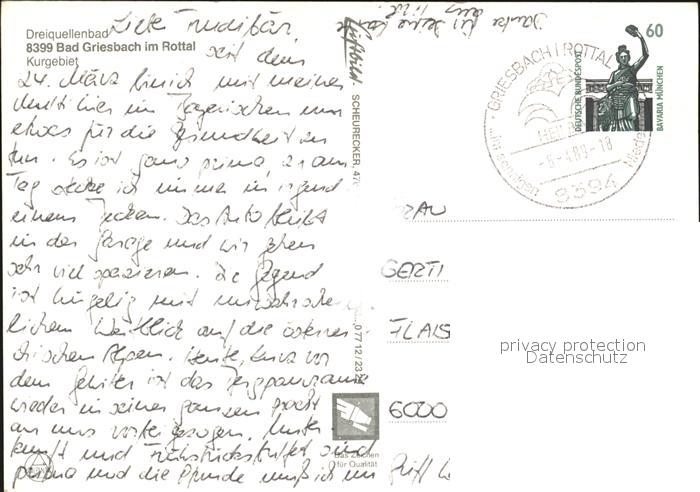 Dreiquellenbad
8399 Bad Griesbach im Rottal
Kurgebiet
Liebe
seit dem
24. März bin ich mit meiner
Mutti hier im Bayerischen um
etwas für die Gesundheit zu
tun. Es ist ganz prima, 2x am
Tag stecke ich immer in irgend
einem Becken. Das Auto bleibt
in der Garage und wir gehen
sehr viel spazieren. Die Gegend
ist hügelig mit unwahrschein-
lichem Weitblick auf die österrei-
chischen Alpen. Heute, kurz vor
dem Gewitter ist das Bergpanorama
wieder in seiner ganzen Pracht
an uns vorbeigezogen. Unter-
kunft und Frühstücksbuffet sind
prima und die Pfunde muß ich im Griff
Luftbild
SCHEURECKER, 47
0 77 12 / 232
Das Zeichen
für Qualität
60
DEUTSCHE BUNDESPOST
BAVARIA MÜNCHEN
GRIESBACH I ROTTAL
-6.-4.89-18
8394
FRAU
GERTI
FLAIS
6000
privacy protection
Datenschutz